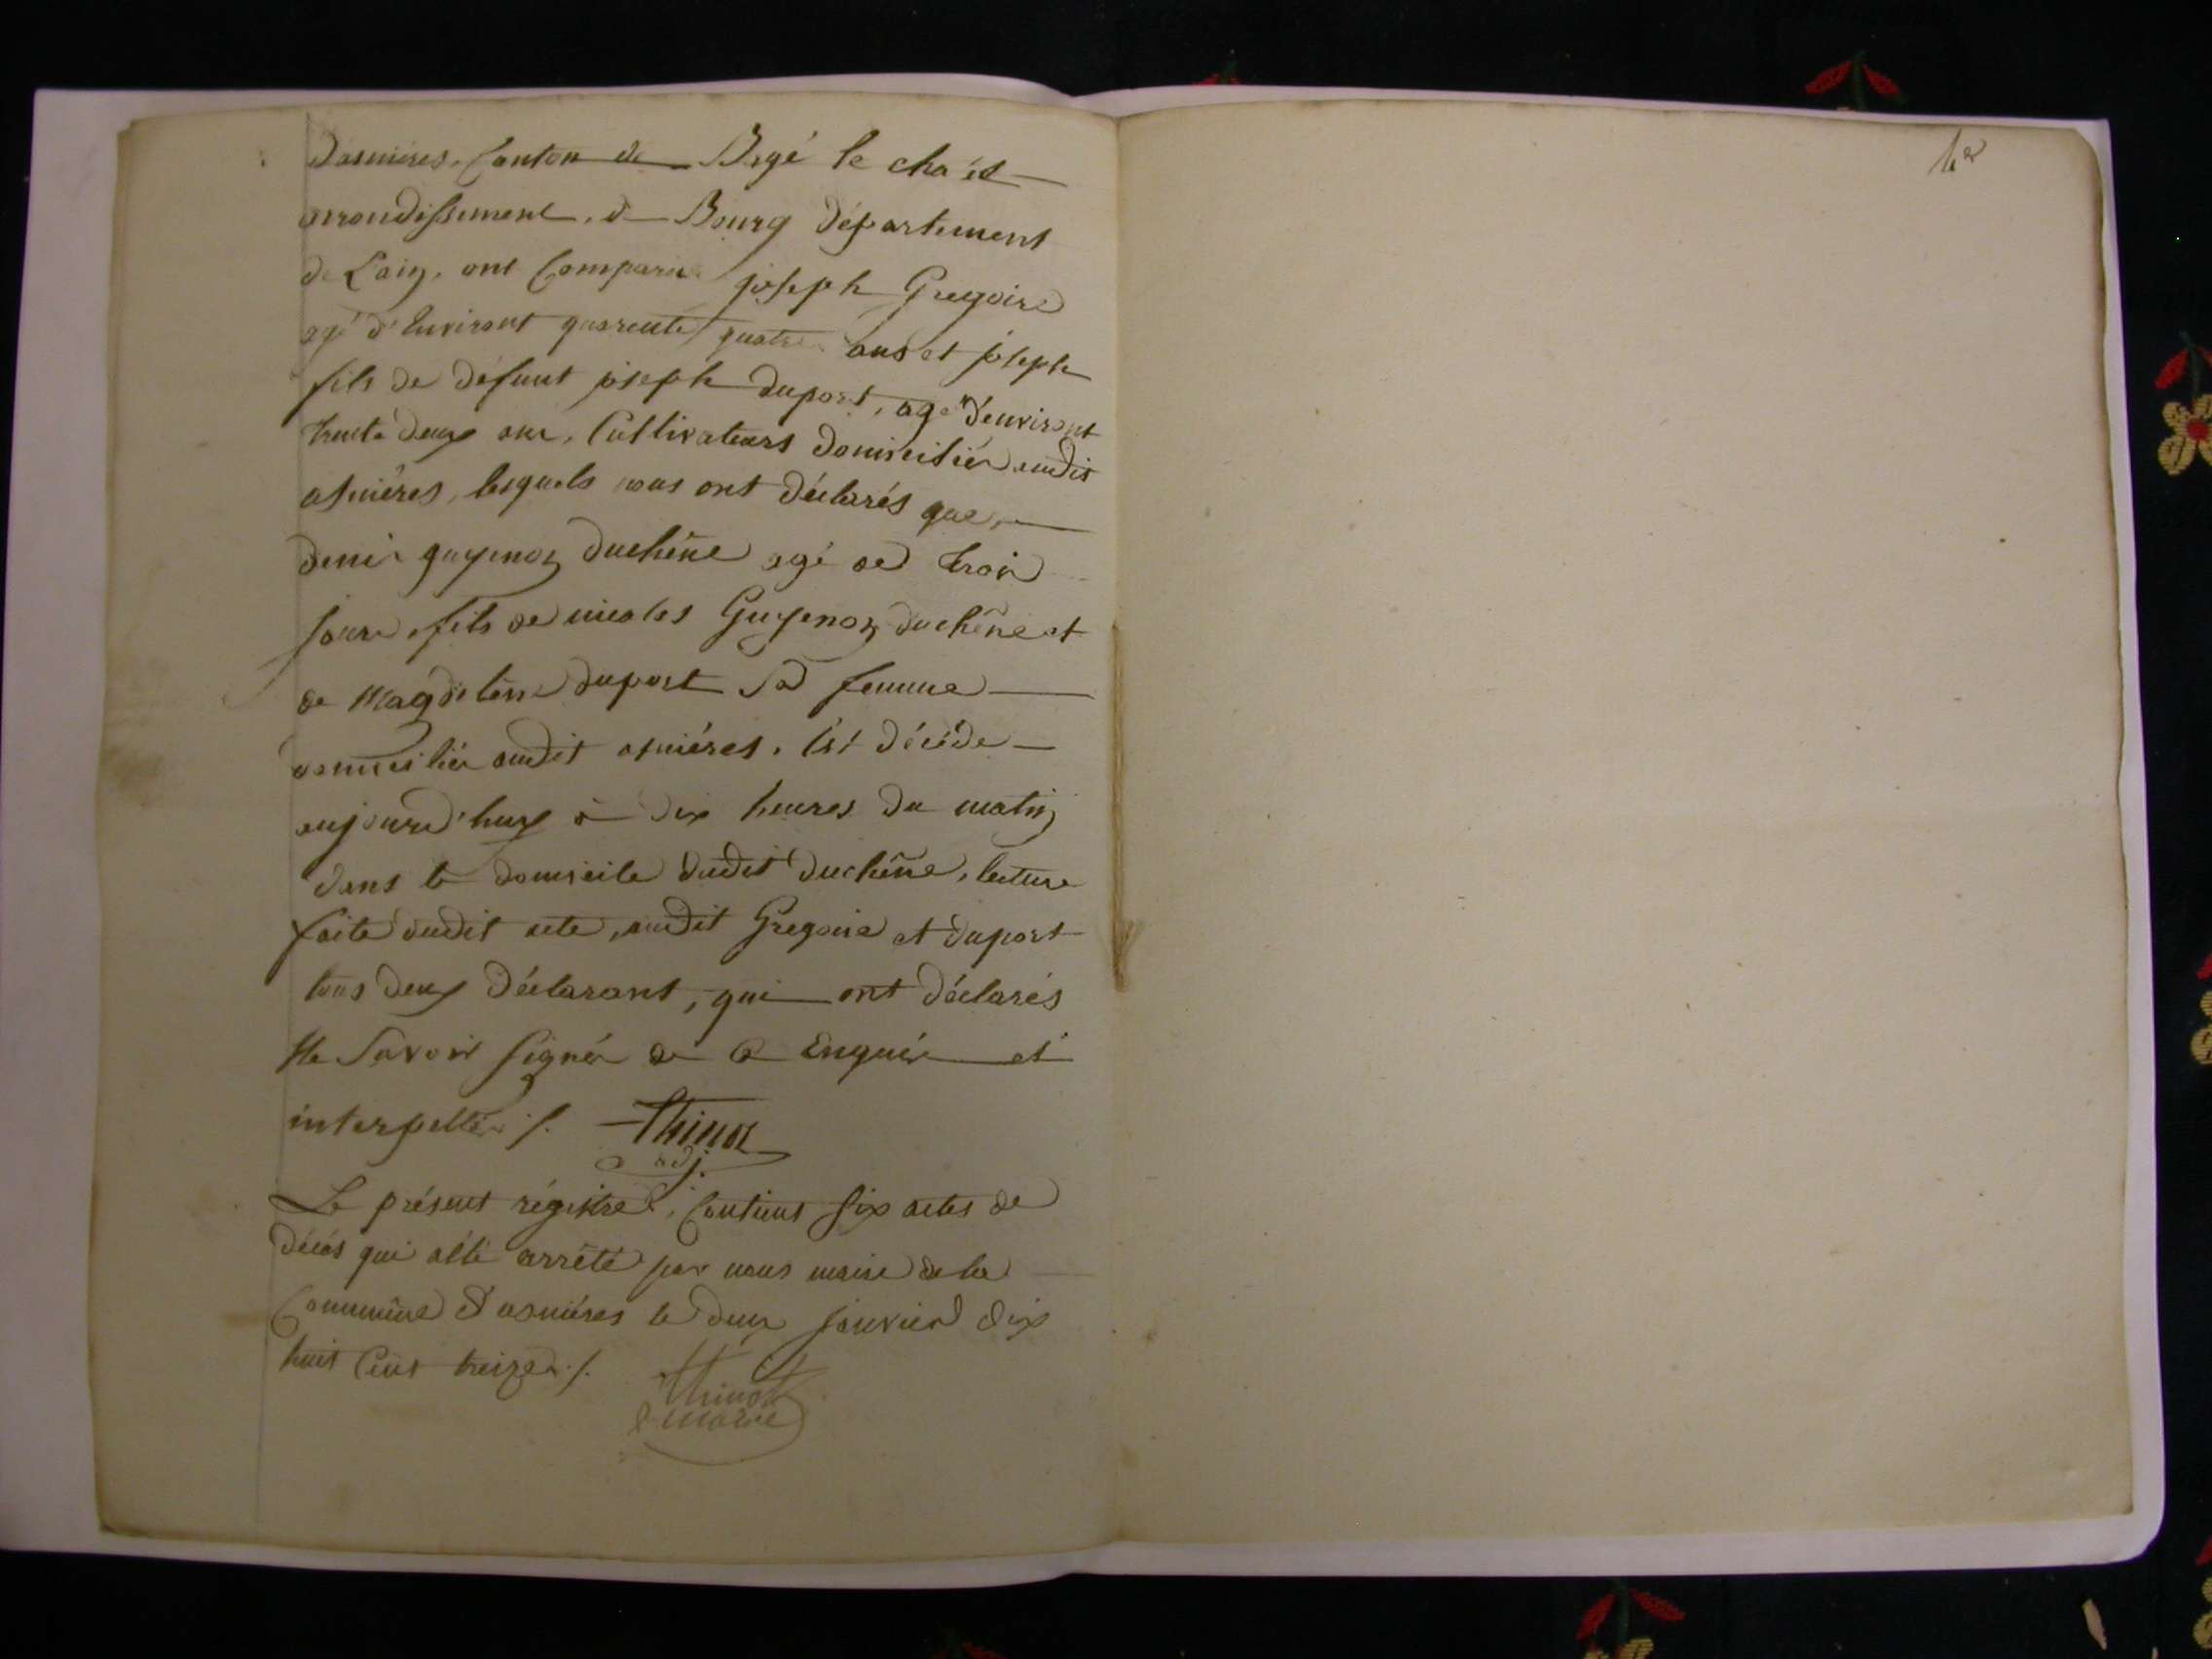 Dasnieres, Canton de Bagé le chatel
arrondissement, de Bourg département
de Lain, ont Comparu joseph Gregoire
agé d'Environt quarente quatre ans et joseph
fils de défunt joseph duport, agé d'environt
trente deux ans, Cultivateurs domiciliés audit
asnières, lesquels nous ont déclarés que,
denis guyenon duchêne agé de trois
jours, fils de nicolas Guyenon duchêne et
de Magdeleine duport sa femme
domiciliés audit asniéres, Est décéde
aujourd'huy à dix heures du matin
dans le domicile dudit duchêne, lecture
faite dudit acte, audit Gregoire et duport
tous deux déclarant, qui ont déclarés
Ne Savoir signér de Ce Enquis et
interpellés ./. Thinon
adj.
Le présent régistre, Contient six actes de
décés qui a été arrêté par nous maire de la
Commune d'asniéres le deux janvier dix
huit Cent treize ./.
Thinon
maire
1er